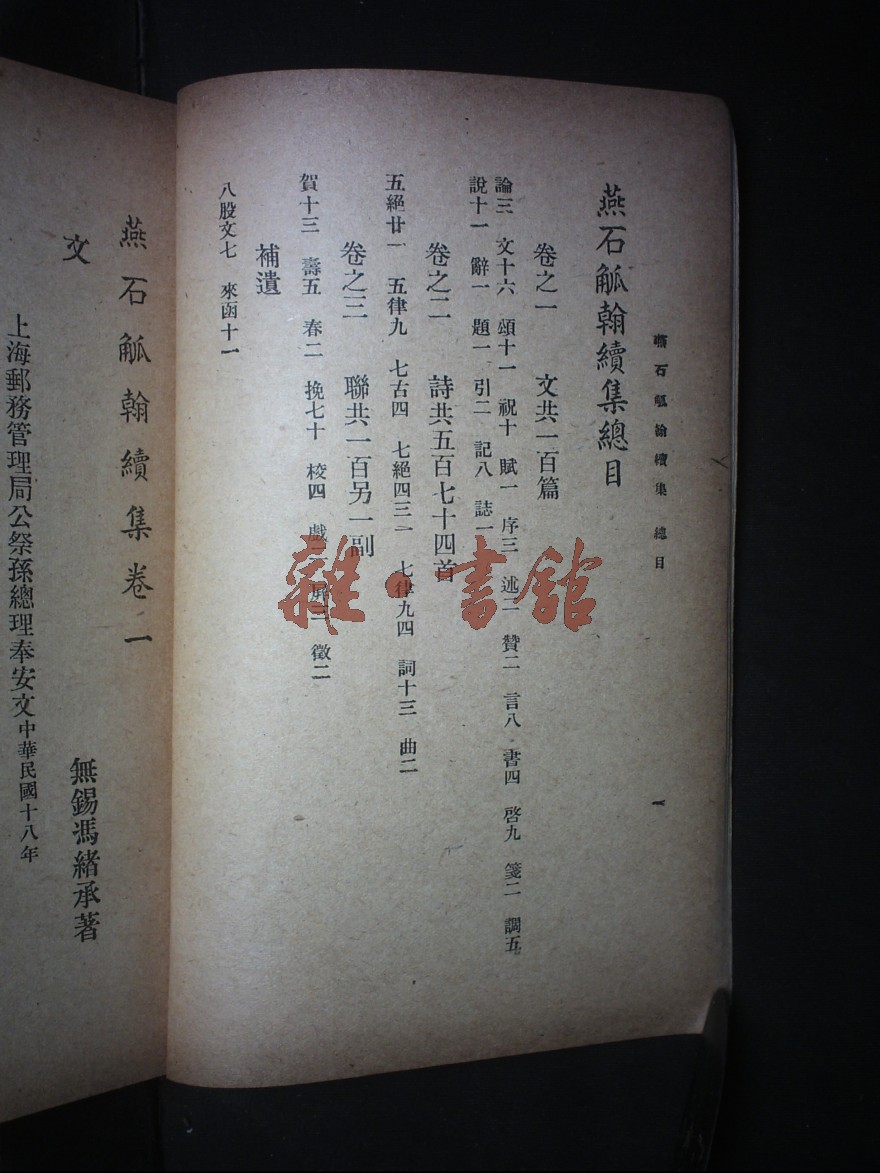 燕石觚翰續集 總目
一
燕石觚翰續集總目
卷之一 文共一百篇
論三 文十六 頌十一 祝十 賦一 序三 述二 贊二 言八 書四 啓九 箋二 調五
說十一 辭一 題一 引二 記八 誌一
卷之二 詩共五百七十四首
五絕廿一 五律九 七古四 七絕四三一 七律九四 詞十三 曲二
卷之三 聯共一百另一副
賀十三 壽五 春二 挽七十 校四 戲二 屏三 徵二
補遺
八股文七 來函十一
雜·書館
燕石觚翰續集卷一
無錫馮緒承著
文
上海郵務管理局公祭孫總理奉安文中華民國十八年